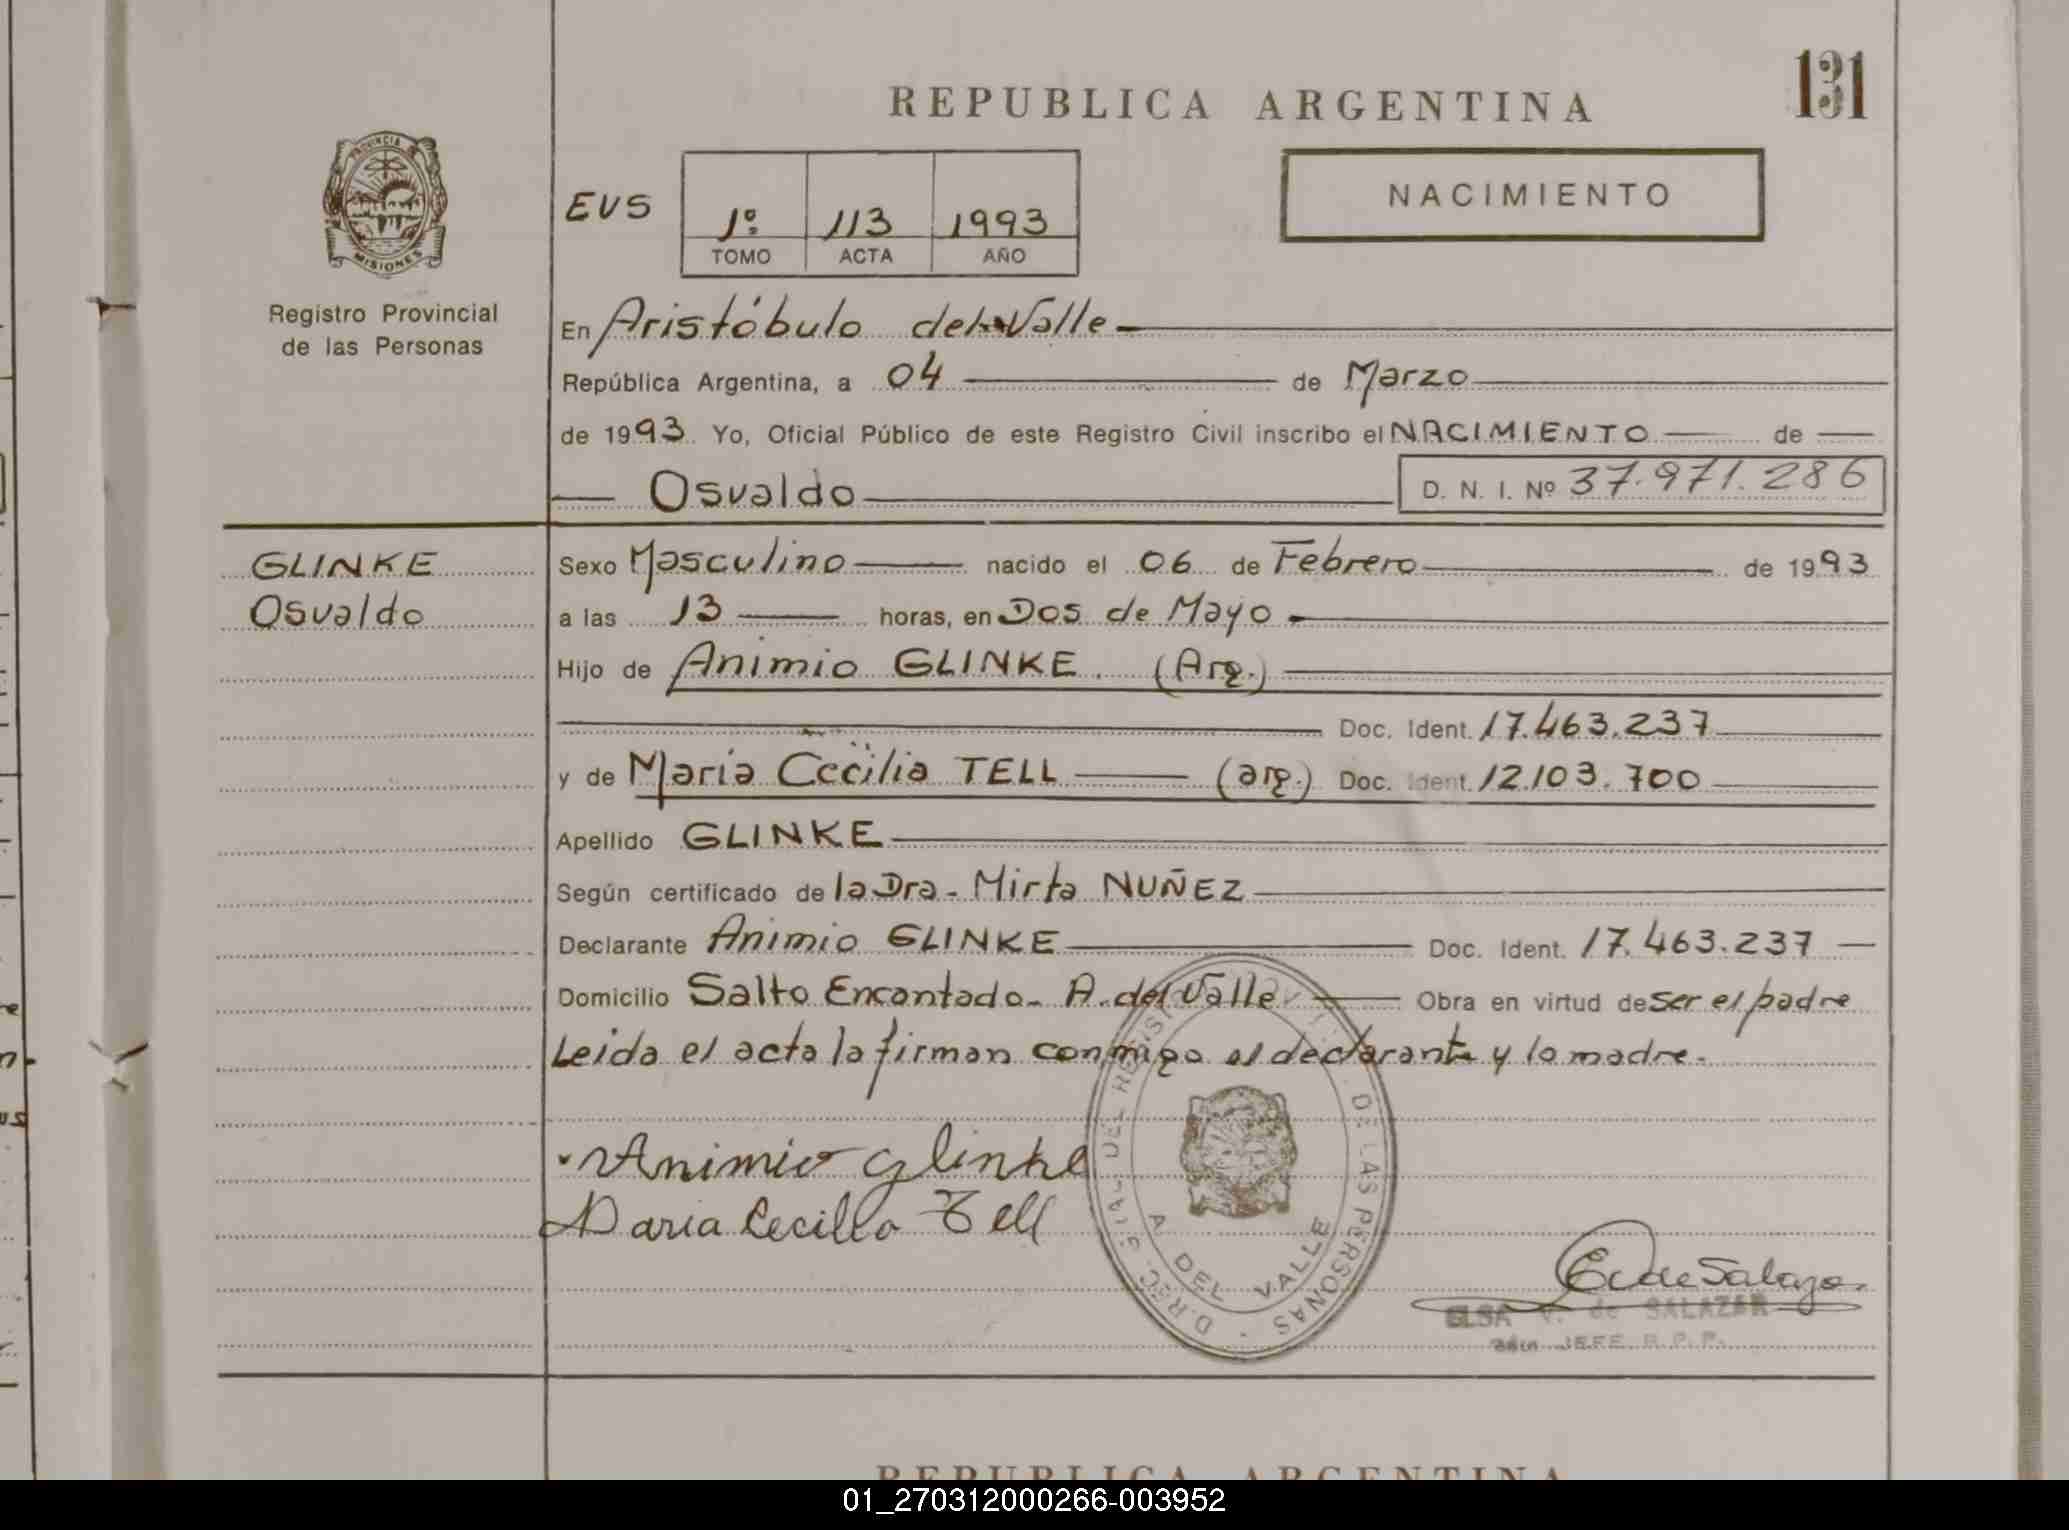 131
REPUBLICA ARGENTINA
PROVINCIA DE
MISIONES
Registro Provincial
de las Personas
EVS
1º 113 1993
TOMO ACTA AÑO
NACIMIENTO
En Aristóbulo del Valle
República Argentina, a 04 de Marzo
de 1993 Yo, Oficial Público de este Registro Civil inscribo el NACIMIENTO de
Osvaldo D. N. I. Nº 37.971.286
GLINKE
Osvaldo
Sexo Masculino nacido el 06 de Febrero de 1993
a las 13 horas, en Dos de Mayo
Hijo de Animio GLINKE. (Arg.)
Doc. Ident. 17.463.237
y de Maria Cecilia TELL (arg.) Doc. Ident. 12.103.700
Apellido GLINKE
Según certificado de la Dra- Mirta NUÑEZ
Declarante Animio GLINKE Doc. Ident. 17.463.237
Domicilio Salto Encantado- A. del Valle Obra en virtud de ser el padre
Leida el acta la firman conmigo el declarante y la madre.
Animio Glinke
Maria Cecilla Tell
DE LAS PERSONAS
A DEL VALLE
E V de Salazar
ELSA V. de SALAZAR
JEFE R.P.P.
REPUBLICA ARGENTINA
01_270312000266-003952